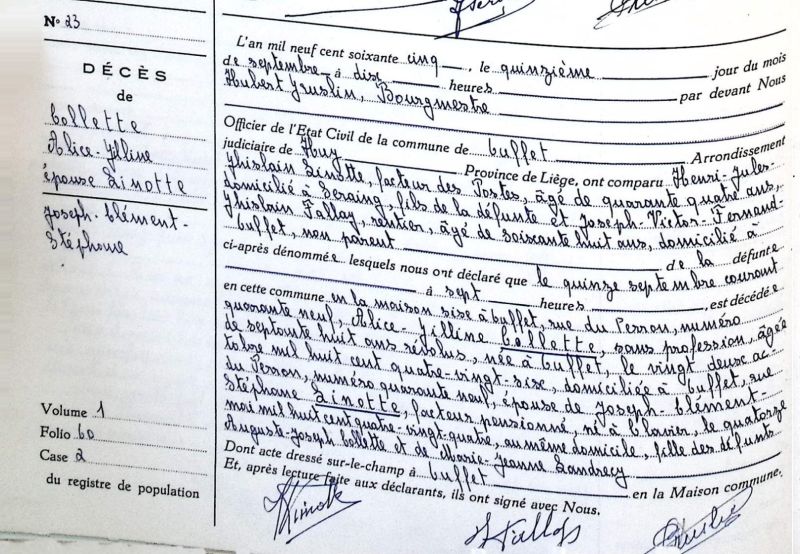 N° 23
DÉCÈS
de
Collette
Alice-Jilline
épouse Linotte
Joseph-Clément-
Stéphane
Volume 1
Folio 60
Case 2
du registre de population
L'an mil neuf cent soixante cinq, le quinzième jour du mois
de septembre à dix heures par devant Nous
Hubert Bourgmestre
Officier de l'Etat Civil de la commune de Cuffet Arrondissement
judiciaire de Huy Province de Liège, ont comparu Henri-Jules-
Ghislain Linotte, facteur des Postes, âgé de quarante quatre ans,
domicilié à Seraing, fils de la défunte et Joseph-Victor-Fernand-
Ghislain Tallay, rentier, âgé de soixante huit ans, domicilié à
Cuffet, non parent de la défunte
ci-après dénommée lesquels nous ont déclaré que le quinze septembre courant
à sept heures, est décédée
en cette commune en la maison sise à Cuffet, rue du Perron, numéro
quarante neuf, Alice-Jilline Collette, sans profession, âgée
de septante huit ans révolus, née à Cuffet, le vingt deux oc-
tobre mil huit cent quatre-vingt-six, domiciliée à Cuffet, rue
du Perron, numéro quarante neuf, épouse de Joseph-Clément-
Stéphane Linotte, facteur pensionné, né à Clavier, le quatorze
mai mil huit cent quatre-vingt-quatre, au même domicile, fille des défunts
Auguste-Joseph Collette et de Marie-Jeanne Landrecy
Dont acte dressé sur-le-champ à Cuffet en la Maison commune.
Et, après lecture faite aux déclarants, ils ont signé avec Nous.